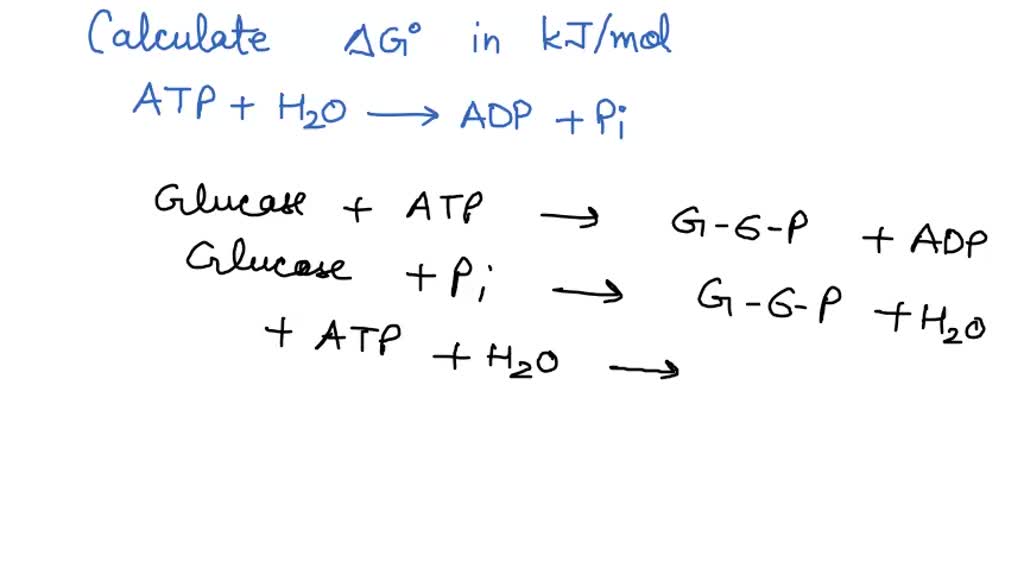 Calculate ΔG° in kJ/mol
ATP + H₂O ⟶ ADP + Pi
Glucose + ATP → G-6-P + ADP
Glucose + Pi ⟶ G-6-P + H₂O
+ ATP + H₂O ⟶